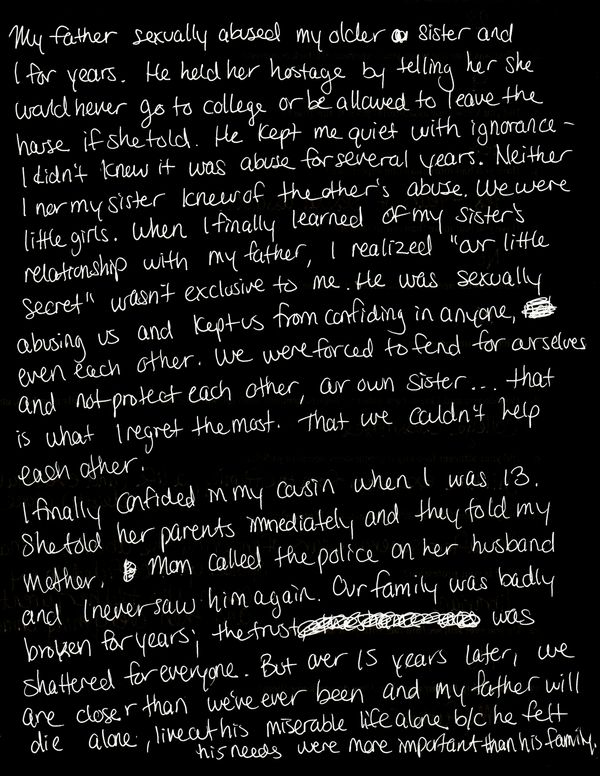 My father sexually abused my older sister and
I for years. He held her hostage by telling her she
would never go to college or be allowed to leave the
house if she told. He kept me quiet with ignorance -
I didn't know it was abuse for several years. Neither
I nor my sister knew of the other's abuse. We were
little girls. When I finally learned of my sister's
relationship with my father, I realized "our little
secret" wasn't exclusive to me. He was sexually
abusing us and kept us from confiding in anyone,
even each other. We were forced to fend for ourselves
and not protect each other, our own sister... that
is what I regret the most. That we couldn't help
each other.
I finally confided in my cousin when I was 13.
She told her parents immediately and they told my
mother. Mom called the police on her husband
and I never saw him again. Our family was badly
broken for years; the trust was
shattered for everyone. But over 15 years later, we
are closer than we've ever been and my father will
die alone, live out his miserable life alone b/c he felt
his needs were more important than his family.